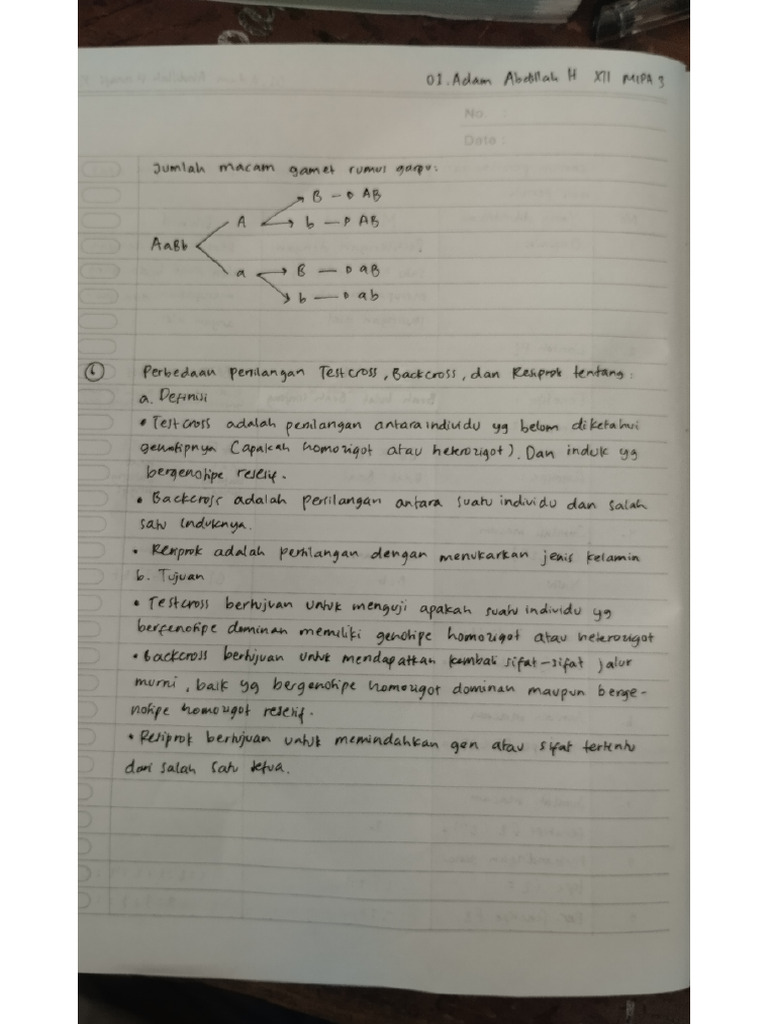 01. Adam Abdillah H XII MIPA 3
No. :
Date :
Jumlah macam gamet rumus garpu:
B → AB
A
b → AB
AaBb
B → aB
a
b → ab
6 Perbedaan persilangan Testcross, Backcross, dan Resiprok tentang:
a. Definisi
• Testcross adalah persilangan antara individu yg belom diketahui
genotipnya (apakah homozigot atau heterozigot). Dan induk yg
bergenotipe resesif.
• Backcross adalah persilangan antara suatu individu dan salah
satu induknya.
• Resiprok adalah persilangan dengan menukarkan jenis kelamin
b. Tujuan
• Testcross bertujuan untuk menguji apakah suatu individu yg
berfenotipe dominan memiliki genotipe homozigot atau heterozigot
• Backcross bertujuan untuk mendapatkan kembali sifat-sifat jalur
murni, baik yg bergenotipe homozigot dominan maupun berge-
notipe homozigot resesif.
• Resiprok bertujuan untuk memindahkan gen atau sifat tertentu
dari salah satu tetua.